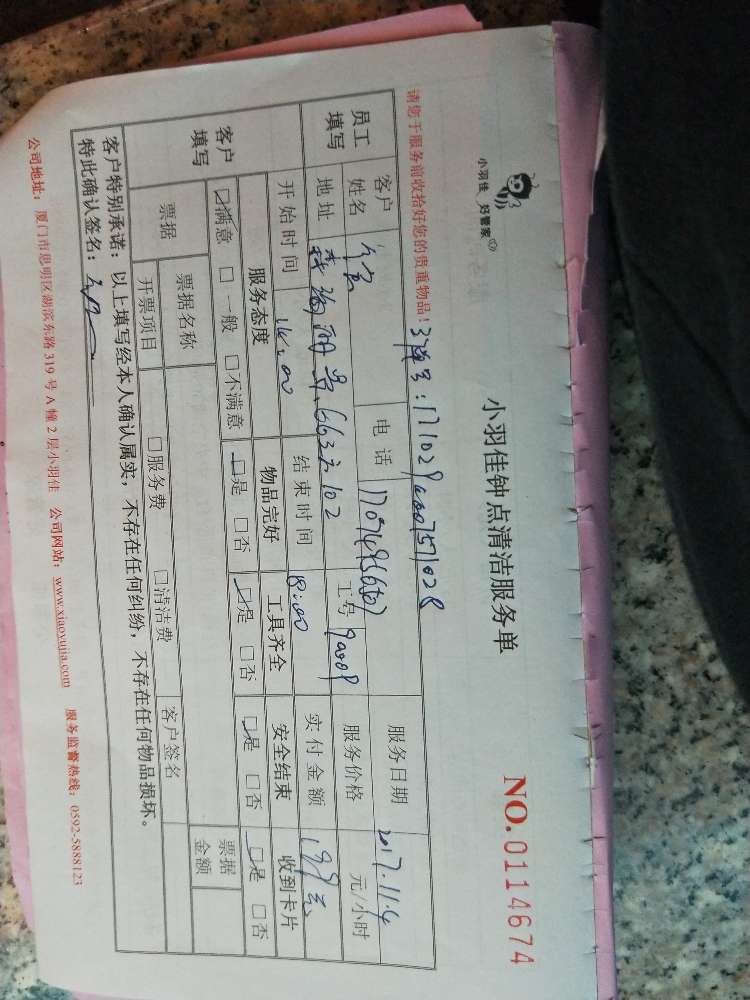 小羽佳 好管家
小羽佳钟点清洁服务单
NO.0114674
请您于服务前收拾好您的贵重物品！
员工填写 客户姓名 电话 服务日期 2017.11.4
地址 663之102 工号 服务价格 元/小时
开始时间 14:00 结束时间 18:00 实付金额 199元
客户填写 服务态度 物品完好 工具齐全 安全结束 收到卡片
☑满意 □一般 □不满意 ☑是 □否 ☑是 □否 ☑是 □否 ☑是 □否
票据 票据名称 客户签名 票据金额
开票项目 □服务费 □清洁费
客户特别承诺：以上填写经本人确认属实，不存在任何纠纷，不存在任何物品损坏。
特此确认签名：
公司地址：厦门市思明区湖滨东路 319 号 A 幢 2 层小羽佳 公司网站：www.xiaoyujia.com 服务监督热线：0592-5888123